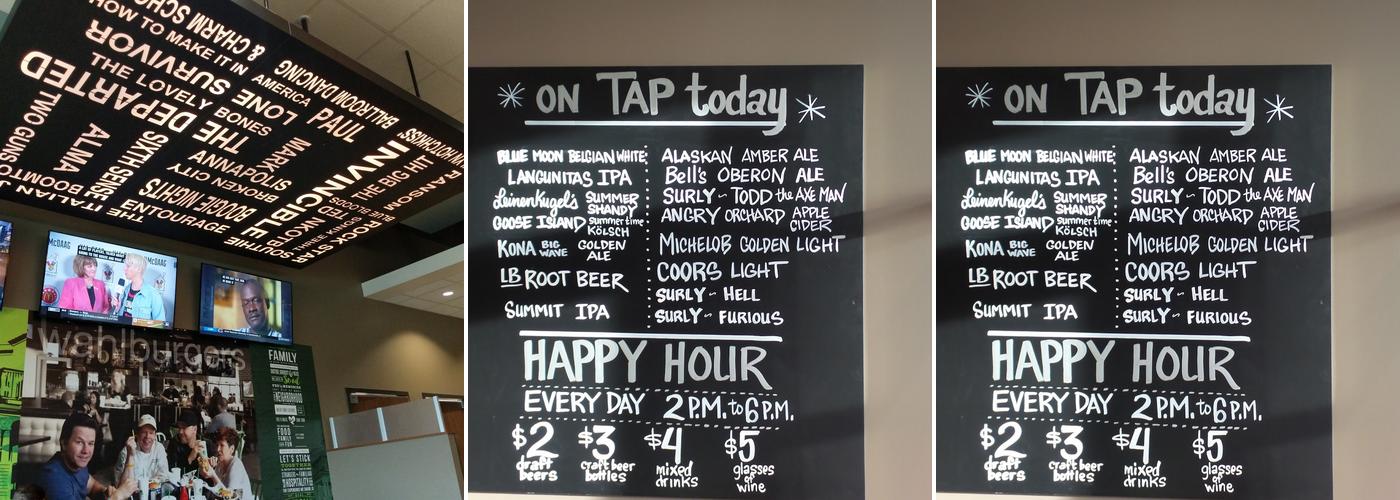 HOW TO MAKE IT IN AMERICA
& CHARM SCHOOL
BALLROOM DANCING
LONE SURVIVOR
PAUL
THE LOVELY BONES
THE DEPARTED
INVINCIBLE
THE BIG HIT
TWO GUNS
ALMA
SIXTH SENSE
ANNAPOLIS
BROKEN CITY
BOOGIE NIGHTS
BOOMTOWN
THE ITALIAN JOB
NKOTB
TED
BLUE BLOODS
RANSOM
ROCK STAR
SOUTHIE
McDAAG
wahlburgers
FAMILY
NEIGHBORHOOD
FOOD
FAMILY
FUN
LET'S STICK
TOGETHER
ON TAP today
BLUE MOON BELGIAN WHITE
LANGUNITAS IPA
Leinenkugel's SUMMER SHANDY
GOOSE ISLAND summertime KÖLSCH
KONA BIG WAVE GOLDEN ALE
LB ROOT BEER
SUMMIT IPA
ALASKAN AMBER ALE
Bell's OBERON ALE
SURLY ~ TODD the AXE MAN
ANGRY ORCHARD APPLE CIDER
MICHELOB GOLDEN LIGHT
COORS LIGHT
SURLY ~ HELL
SURLY ~ FURIOUS
HAPPY HOUR
EVERY DAY 2 P.M. to 6 P.M.
$2 draft beers
$3 craft beer bottles
$4 mixed drinks
$5 glasses of wine
ON TAP today
BLUE MOON BELGIAN WHITE
LANGUNITAS IPA
Leinenkugel's SUMMER SHANDY
GOOSE ISLAND summertime KÖLSCH
KONA BIG WAVE GOLDEN ALE
LB ROOT BEER
SUMMIT IPA
ALASKAN AMBER ALE
Bell's OBERON ALE
SURLY ~ TODD the AXE MAN
ANGRY ORCHARD APPLE CIDER
MICHELOB GOLDEN LIGHT
COORS LIGHT
SURLY ~ HELL
SURLY ~ FURIOUS
HAPPY HOUR
EVERY DAY 2 P.M. to 6 P.M.
$2 draft beers
$3 craft beer bottles
$4 mixed drinks
$5 glasses of wine